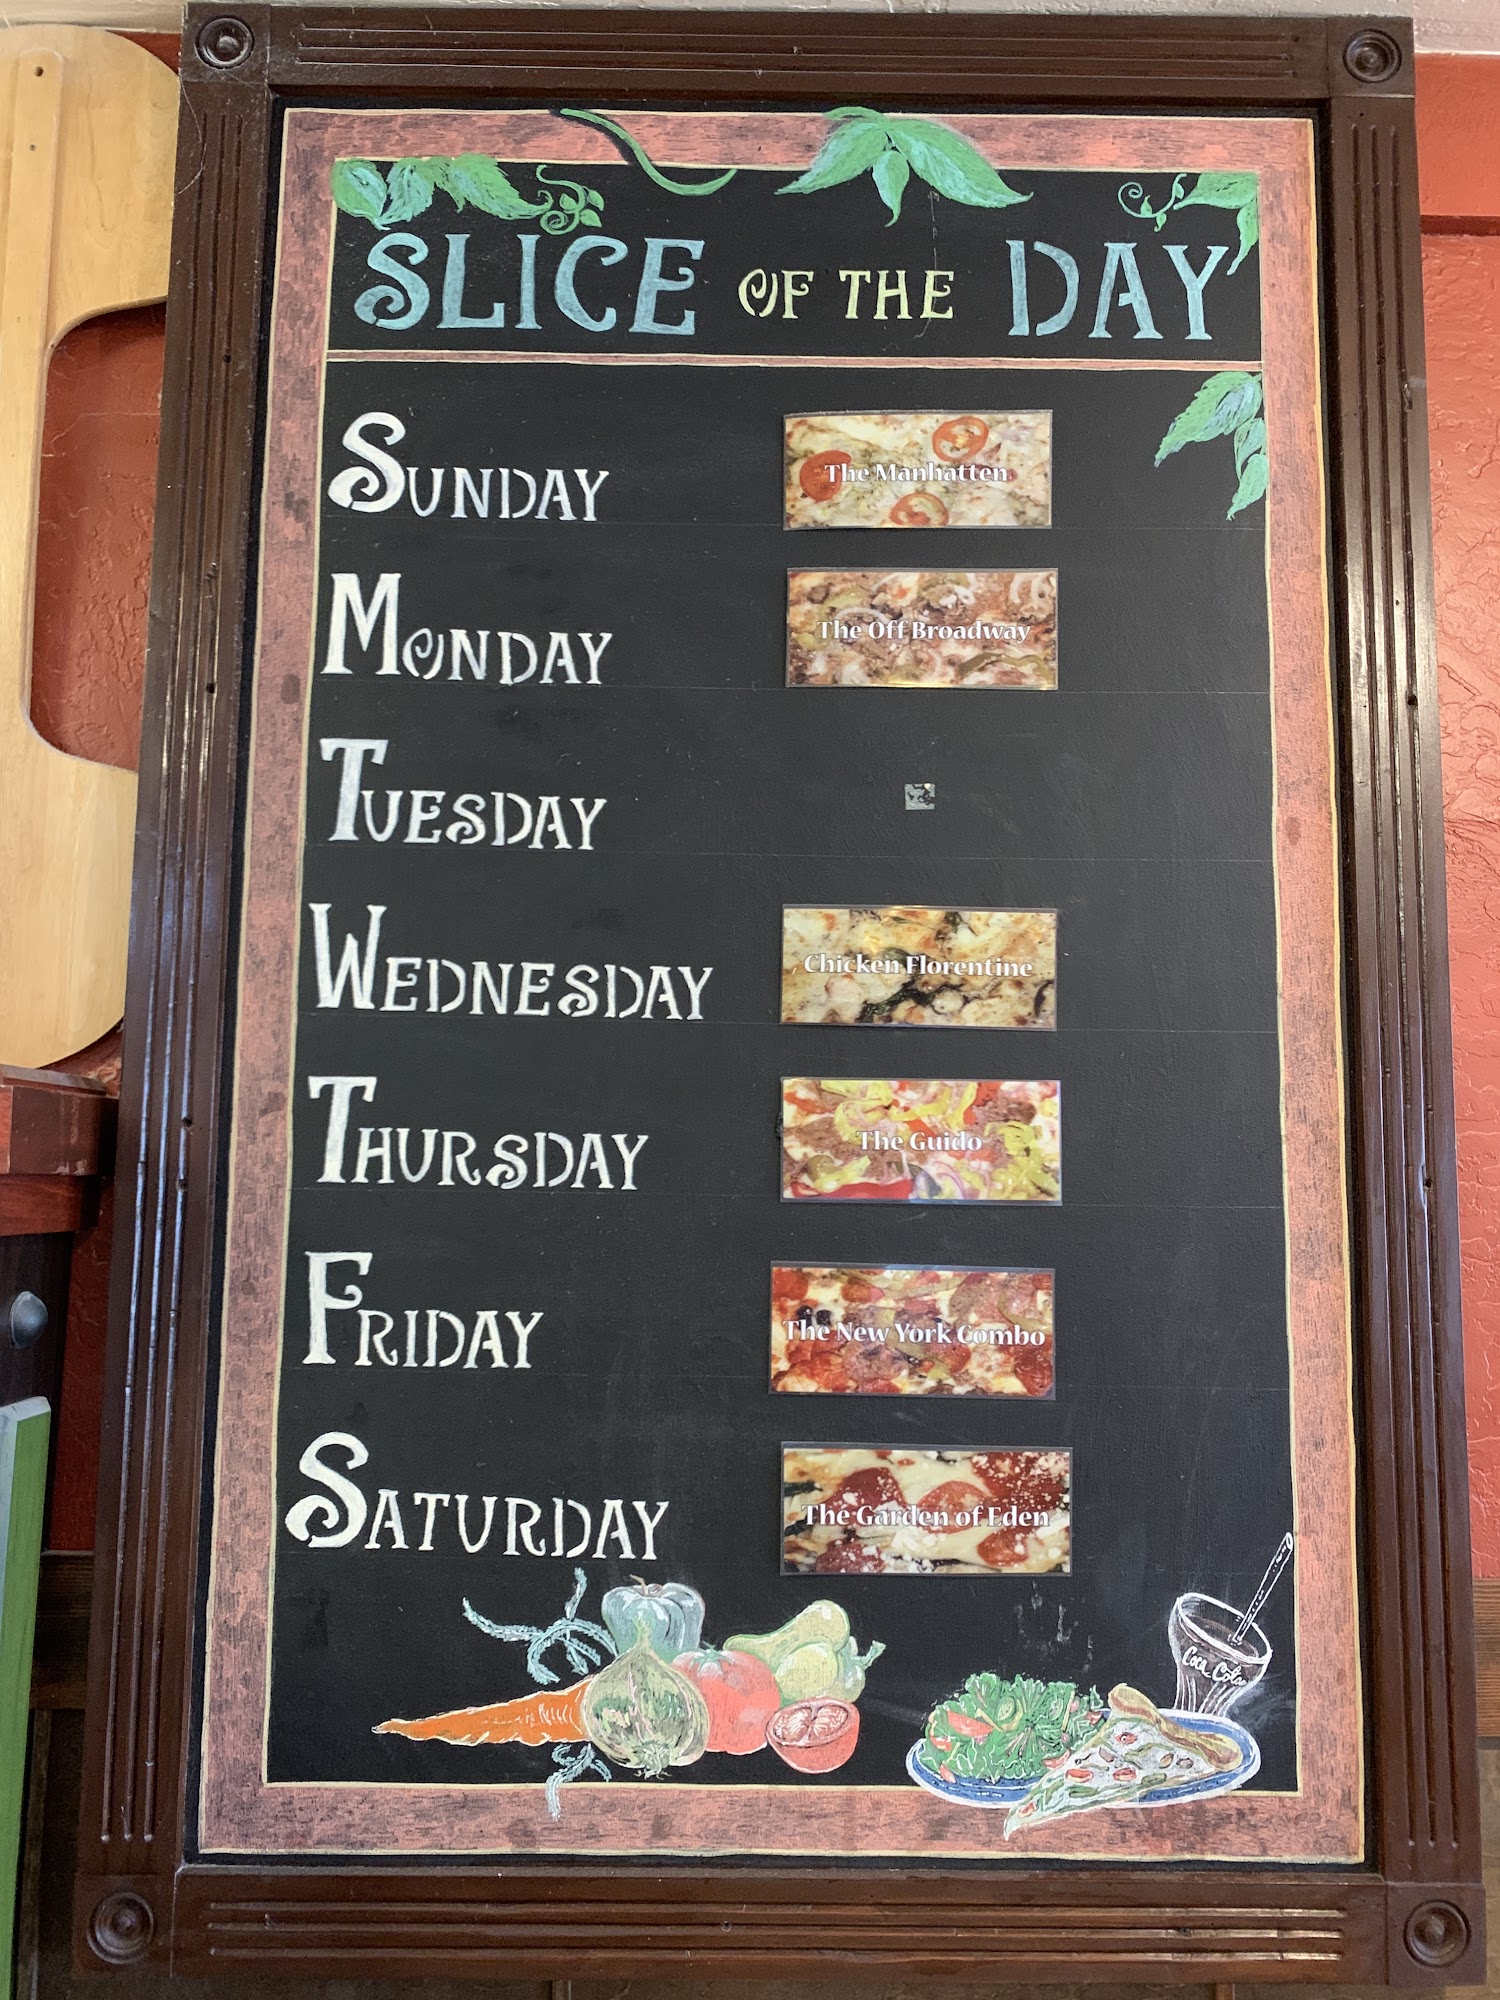 SLICE OF THE DAY
SUNDAY The Manhatten
MONDAY The Off Broadway
TUESDAY
WEDNESDAY Chicken Florentine
THURSDAY The Guido
FRIDAY The New York Combo
SATURDAY The Garden of Eden
Coca Cola